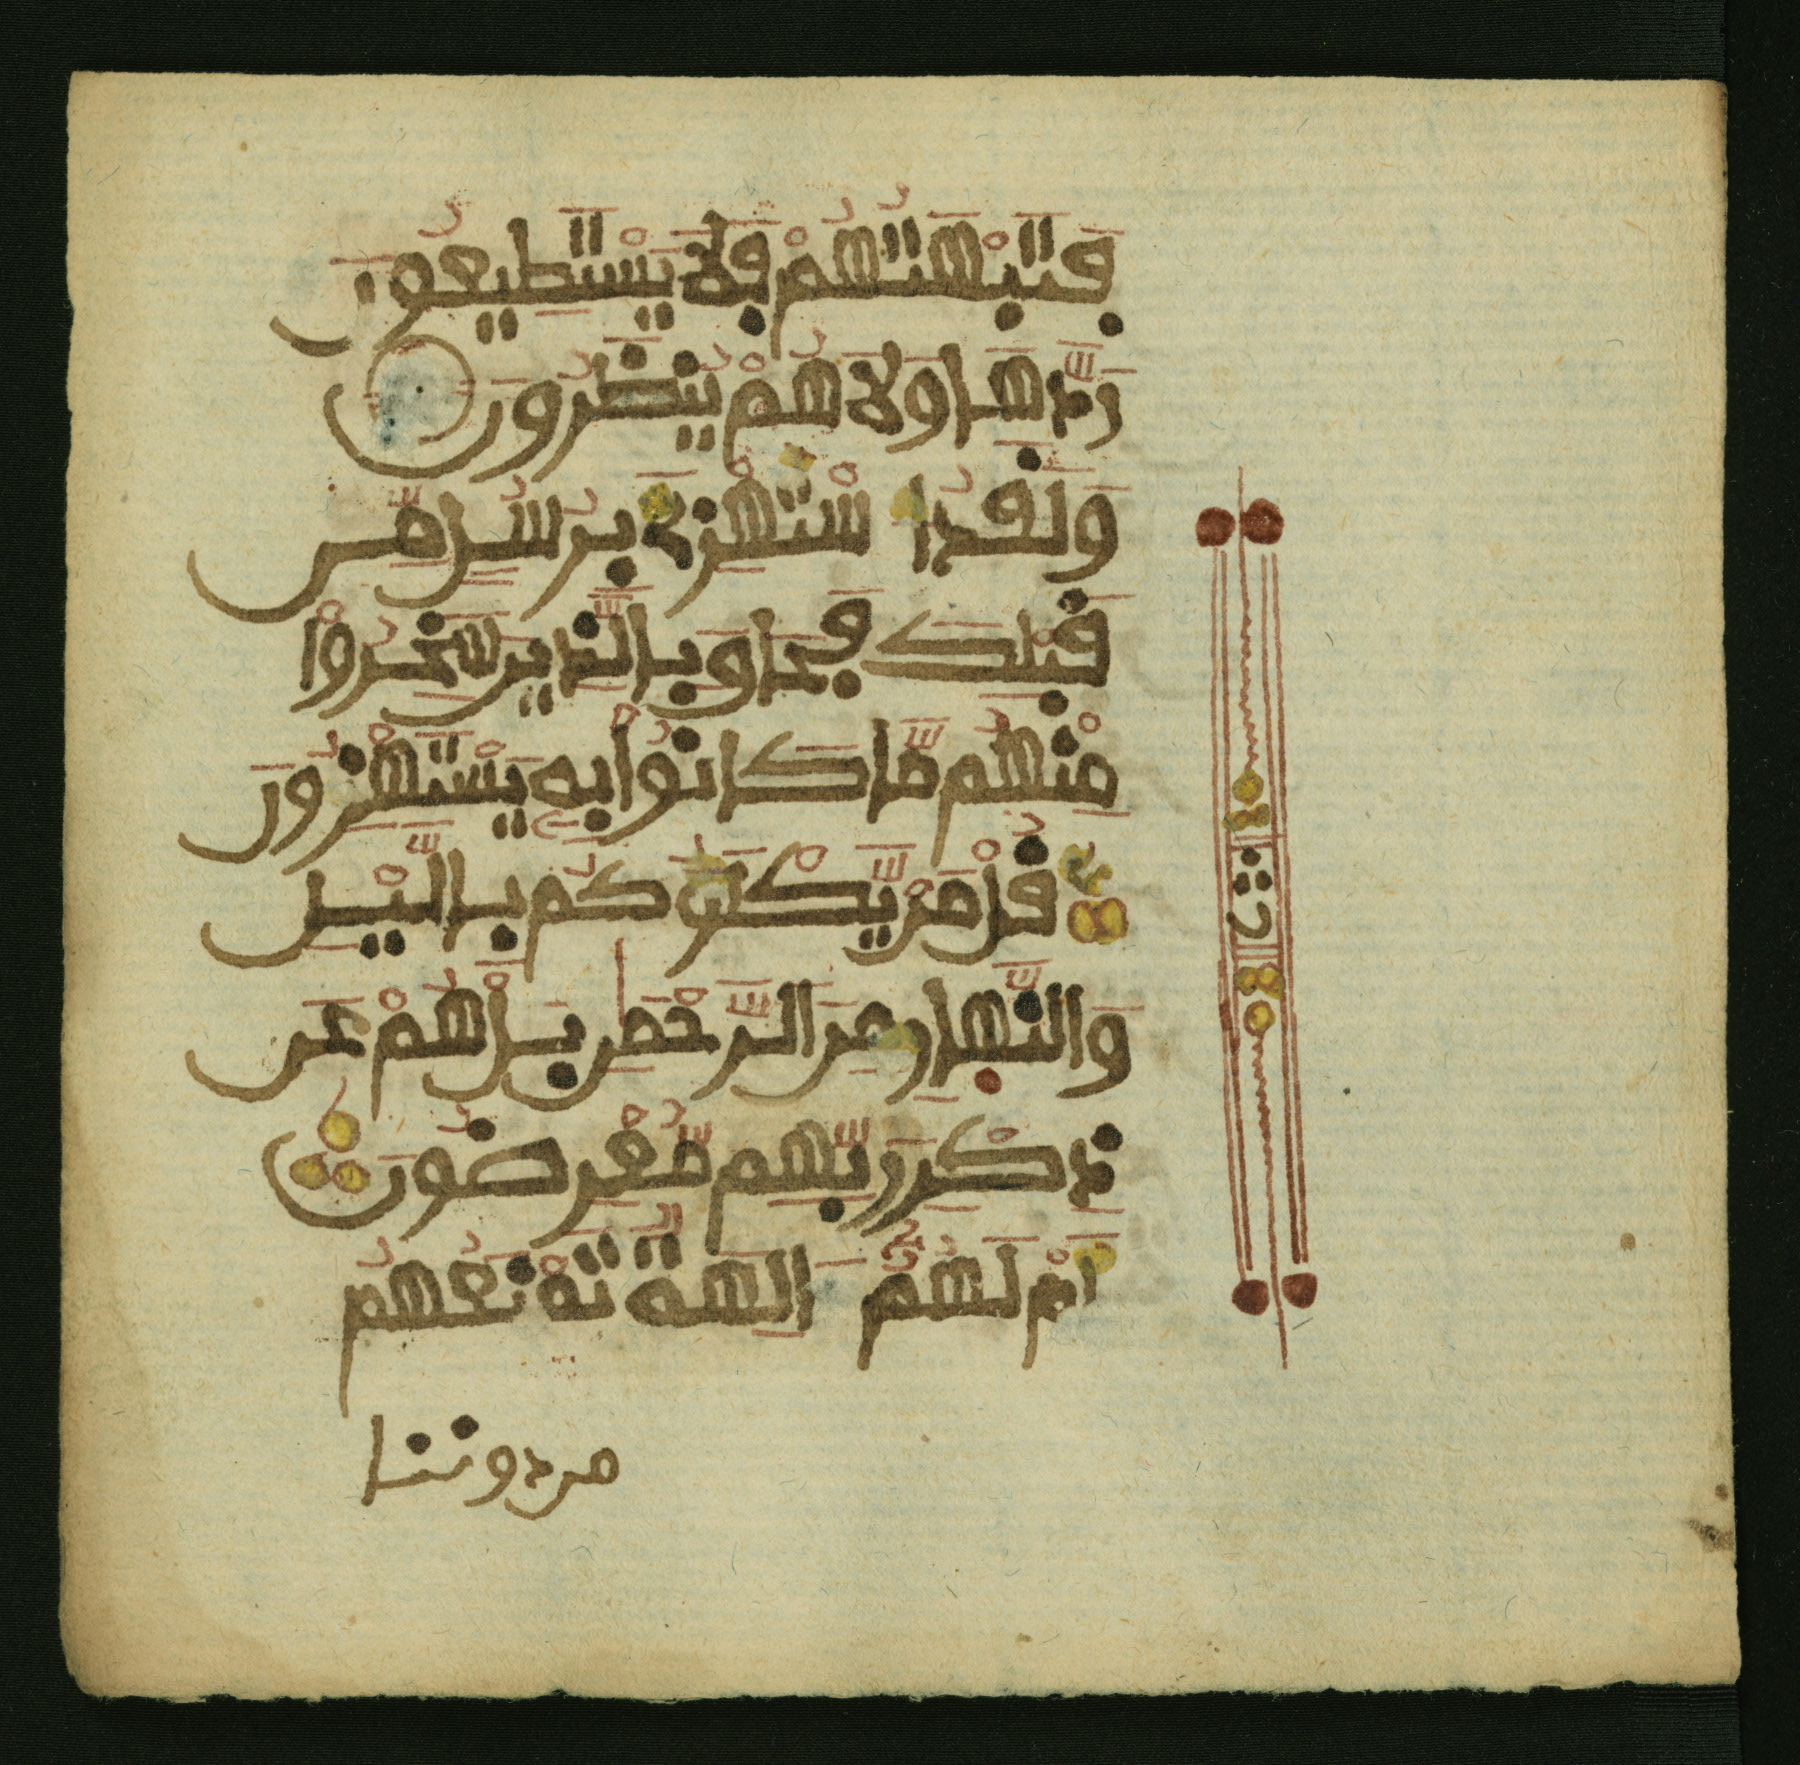 فتبهتهم فلا يستطيعون
ردها ولا هم ينظرون
ولقد استهزئ برسل من
قبلك فحاق بالذين سخروا
منهم ما كانوا به يستهزون
قل من يكلؤكم باليل
والنهار من الرحمن بل هم عن
ذكر ربهم معرضون
ام لهم الهة تمنعهم
من دوننا